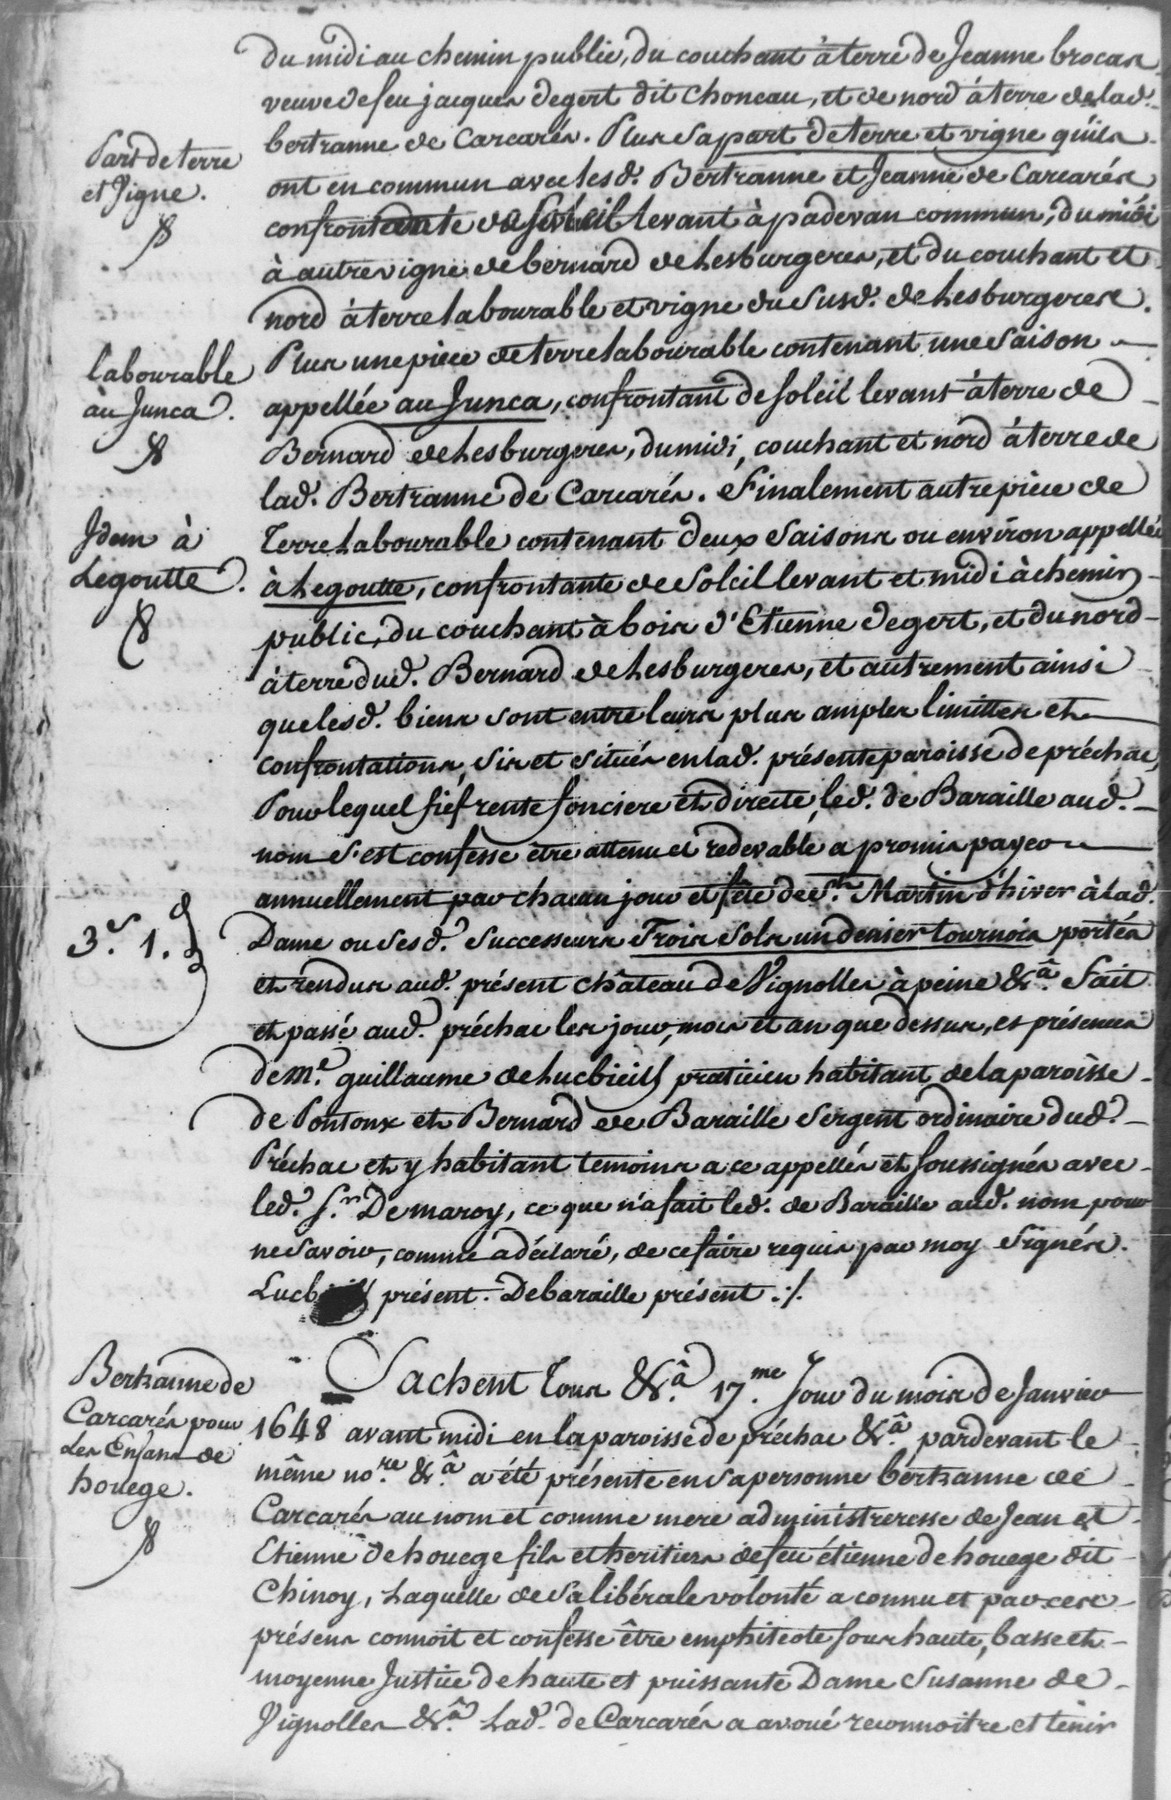 du midi au chemin public, du couchant à terre de Jeanne brocas
veuve de feu jacques degert dit Choncau, et de nord à terre de lad.
bertranne de Carcarés. Plus sa part de terre et vigne qu'ils
Part de terre
et Vigne.
ont en commun avec lesd. Bertranne et Jeanne de Carcarés
confrontante de soleil levant à padevan commun, du midi
à autre vigne de bernard de Lesburgeres, et du couchant et
nord à terre labourable et vigne du susd. de Lesburgeres.
Plus une piece de terre labourable contenant une saison
labourable
au Junca.
appellée au Junca, confrontant de soleil levant à terre de
Bernard de Lesburgeres, du midi, couchant et nord à terre de
lad. Bertranne de Carcarés. Finalement autre piéce de
Idem à
Legoutte.
Terre Labourable contenant deux saisons ou environ appellée
à Legoutte, confrontante de soleil levant et midi à chemin
public, du couchant à bois d'Etienne degert, et du nord
à terre dud. Bernard de Lesburgeres, et autrement ainsi
que lesd. biens sont entre leurs plus amples limittes et
confrontations, sis et situés en lad. présente paroisse de préchac,
Pour lequel fief rente fonciere et directe, led. de Baraille aud.
nom s'est confesse être attenu et redevable, a promis payer
annuellement par chacun jour et fête de St. Martin d'hiver à lad.
3.s 1.d
Dame ou sesd. successeurs Trois sols un denier tournois portés
et rendus aud. présent château de Vignolles à peine &a. Fait
et passé aud. préchac les jour, mois et an que dessus, es présences
de Me. guillaume de Lucbieilh praticien habitant de la paroisse
de Pontonx et Bernard de Baraille sergent ordinaire dud.
Préchac et y habitant temoins a ce appellés et soussignés avec
led. Sr. Demaroy, ce que n'a fait led. de Baraille aud. nom pour
ne savoir, comme a déclaré, de ce faire requis par moy signés.
présent. Debaraille présent ./.
Bertranne de
Carcarés pour
Les Enfans de
houege.
Sachent tous &a. 17.me Jour du mois de Janvier
1648 avant midi en la paroisse de préchac &a. pardevant le
même no.re &a a été présente en sa personne bertranne de
Carcarés au nom et comme mere administreresse de Jean et
Etienne de houege fils et heritiers de feu étienne de houege dit
Chinoy, Laquelle de sa libérale volonté a connu et par ces
présens connoit et confesse être emphiteote sous haute, basse et
moyenne Justice de haute et puissante Dame Susanne de
Vignolles &a. Lad. de Carcarés a avoué reconnoitre et tenir